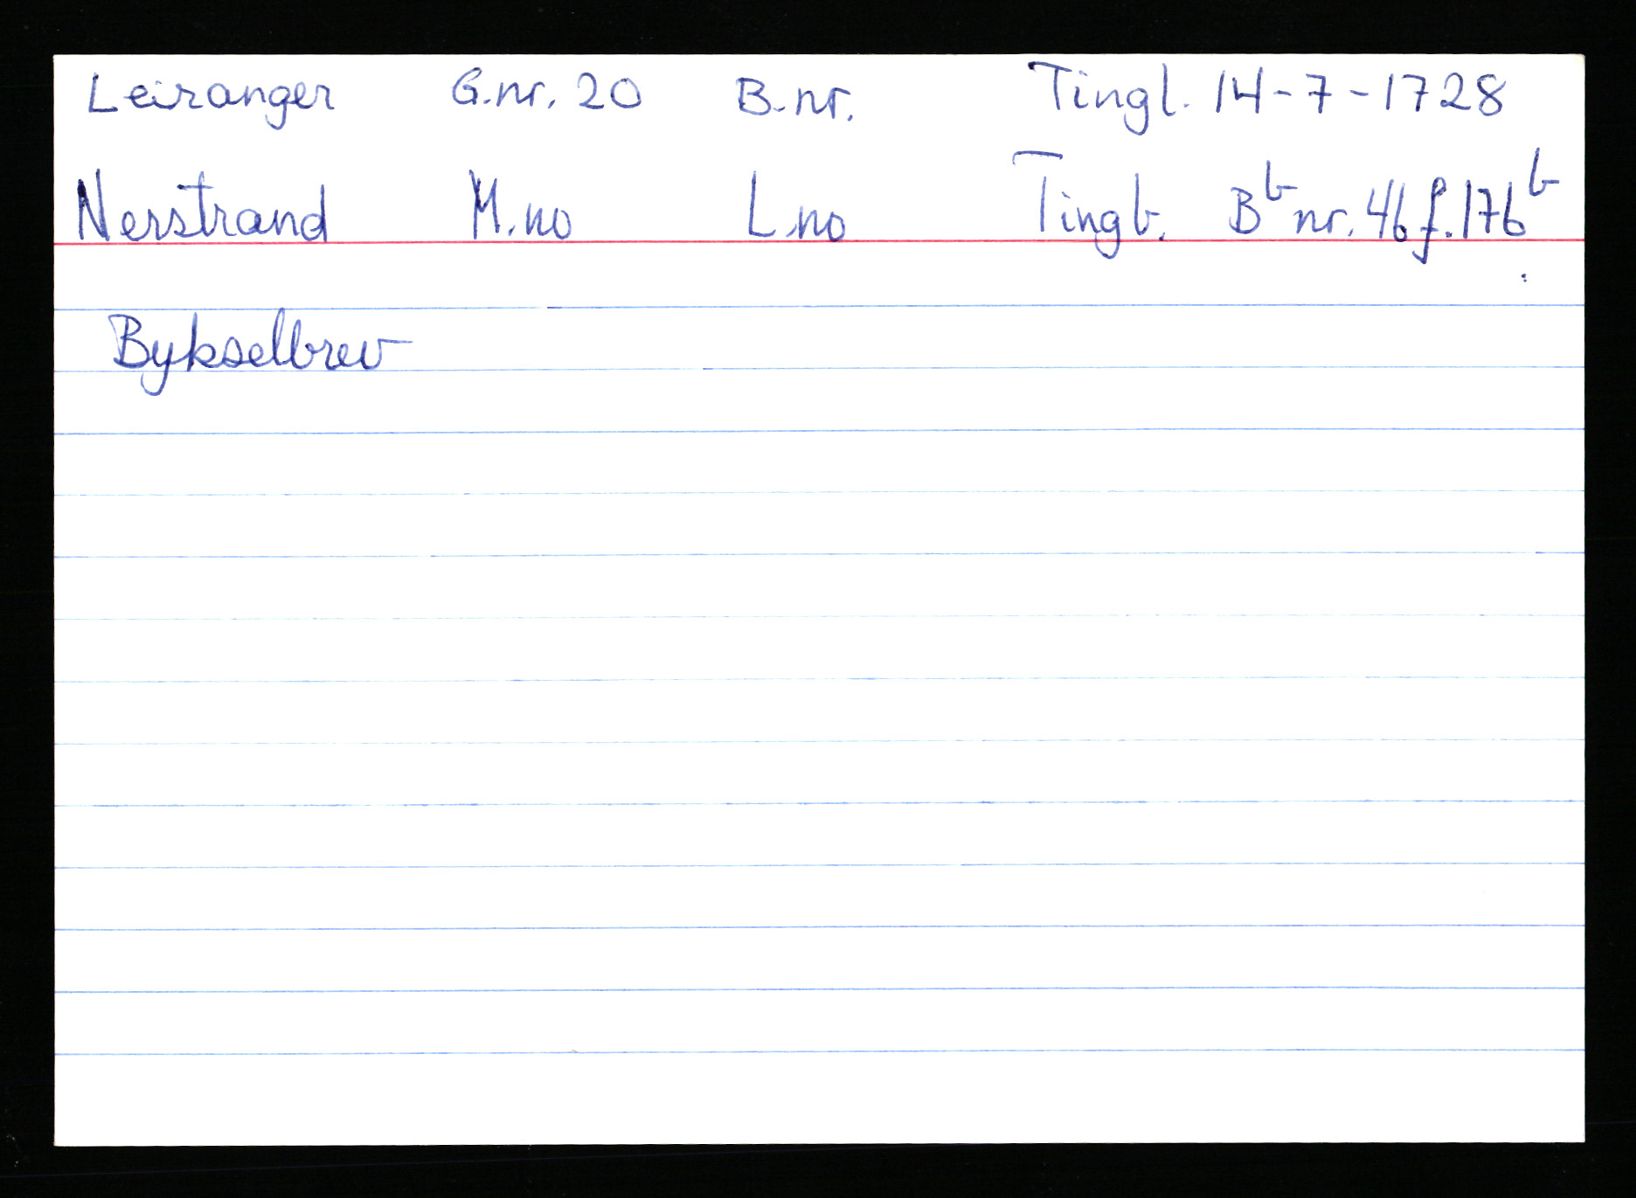 Leiranger G.nr. 20 B.nr. Tingl. 14-7-1728
Nerstrand M.no L.no Tingb. Bb nr. 46 f. 176b
Bykselbrev